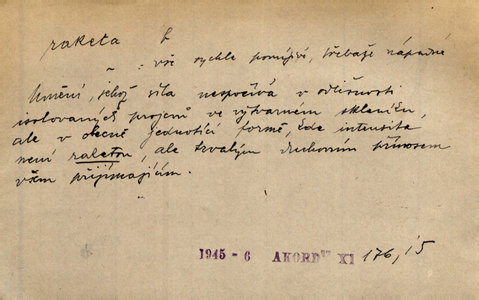 raketa f
~ : vše rychle pomíjivé, třebaže nápadné
Umění, jehož síla nespočívá v odlišnosti
isolovaných projevů ve výtvarném skleníku,
ale v obecně jednotící formě, kde intensita
není raketou, ale trvalým duchovním přínosem
všem přijímajícím.
1945 - 6 AKORD XI 176, 15